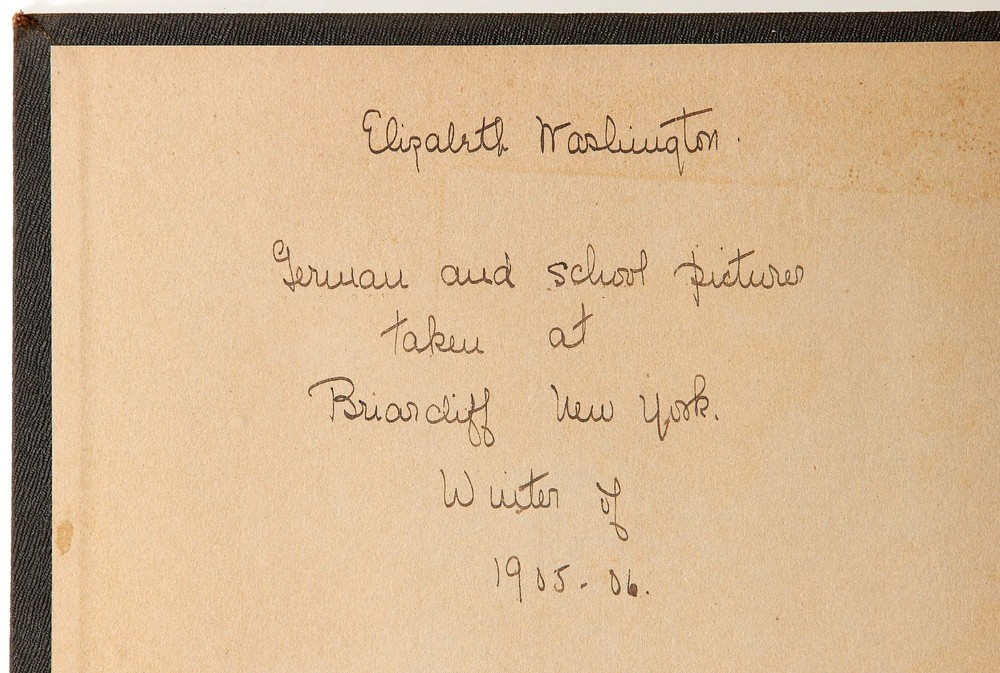 Elizabeth Washington.
German and school pictures
taken at
Briarcliff New York.
Winter of
1905-06.